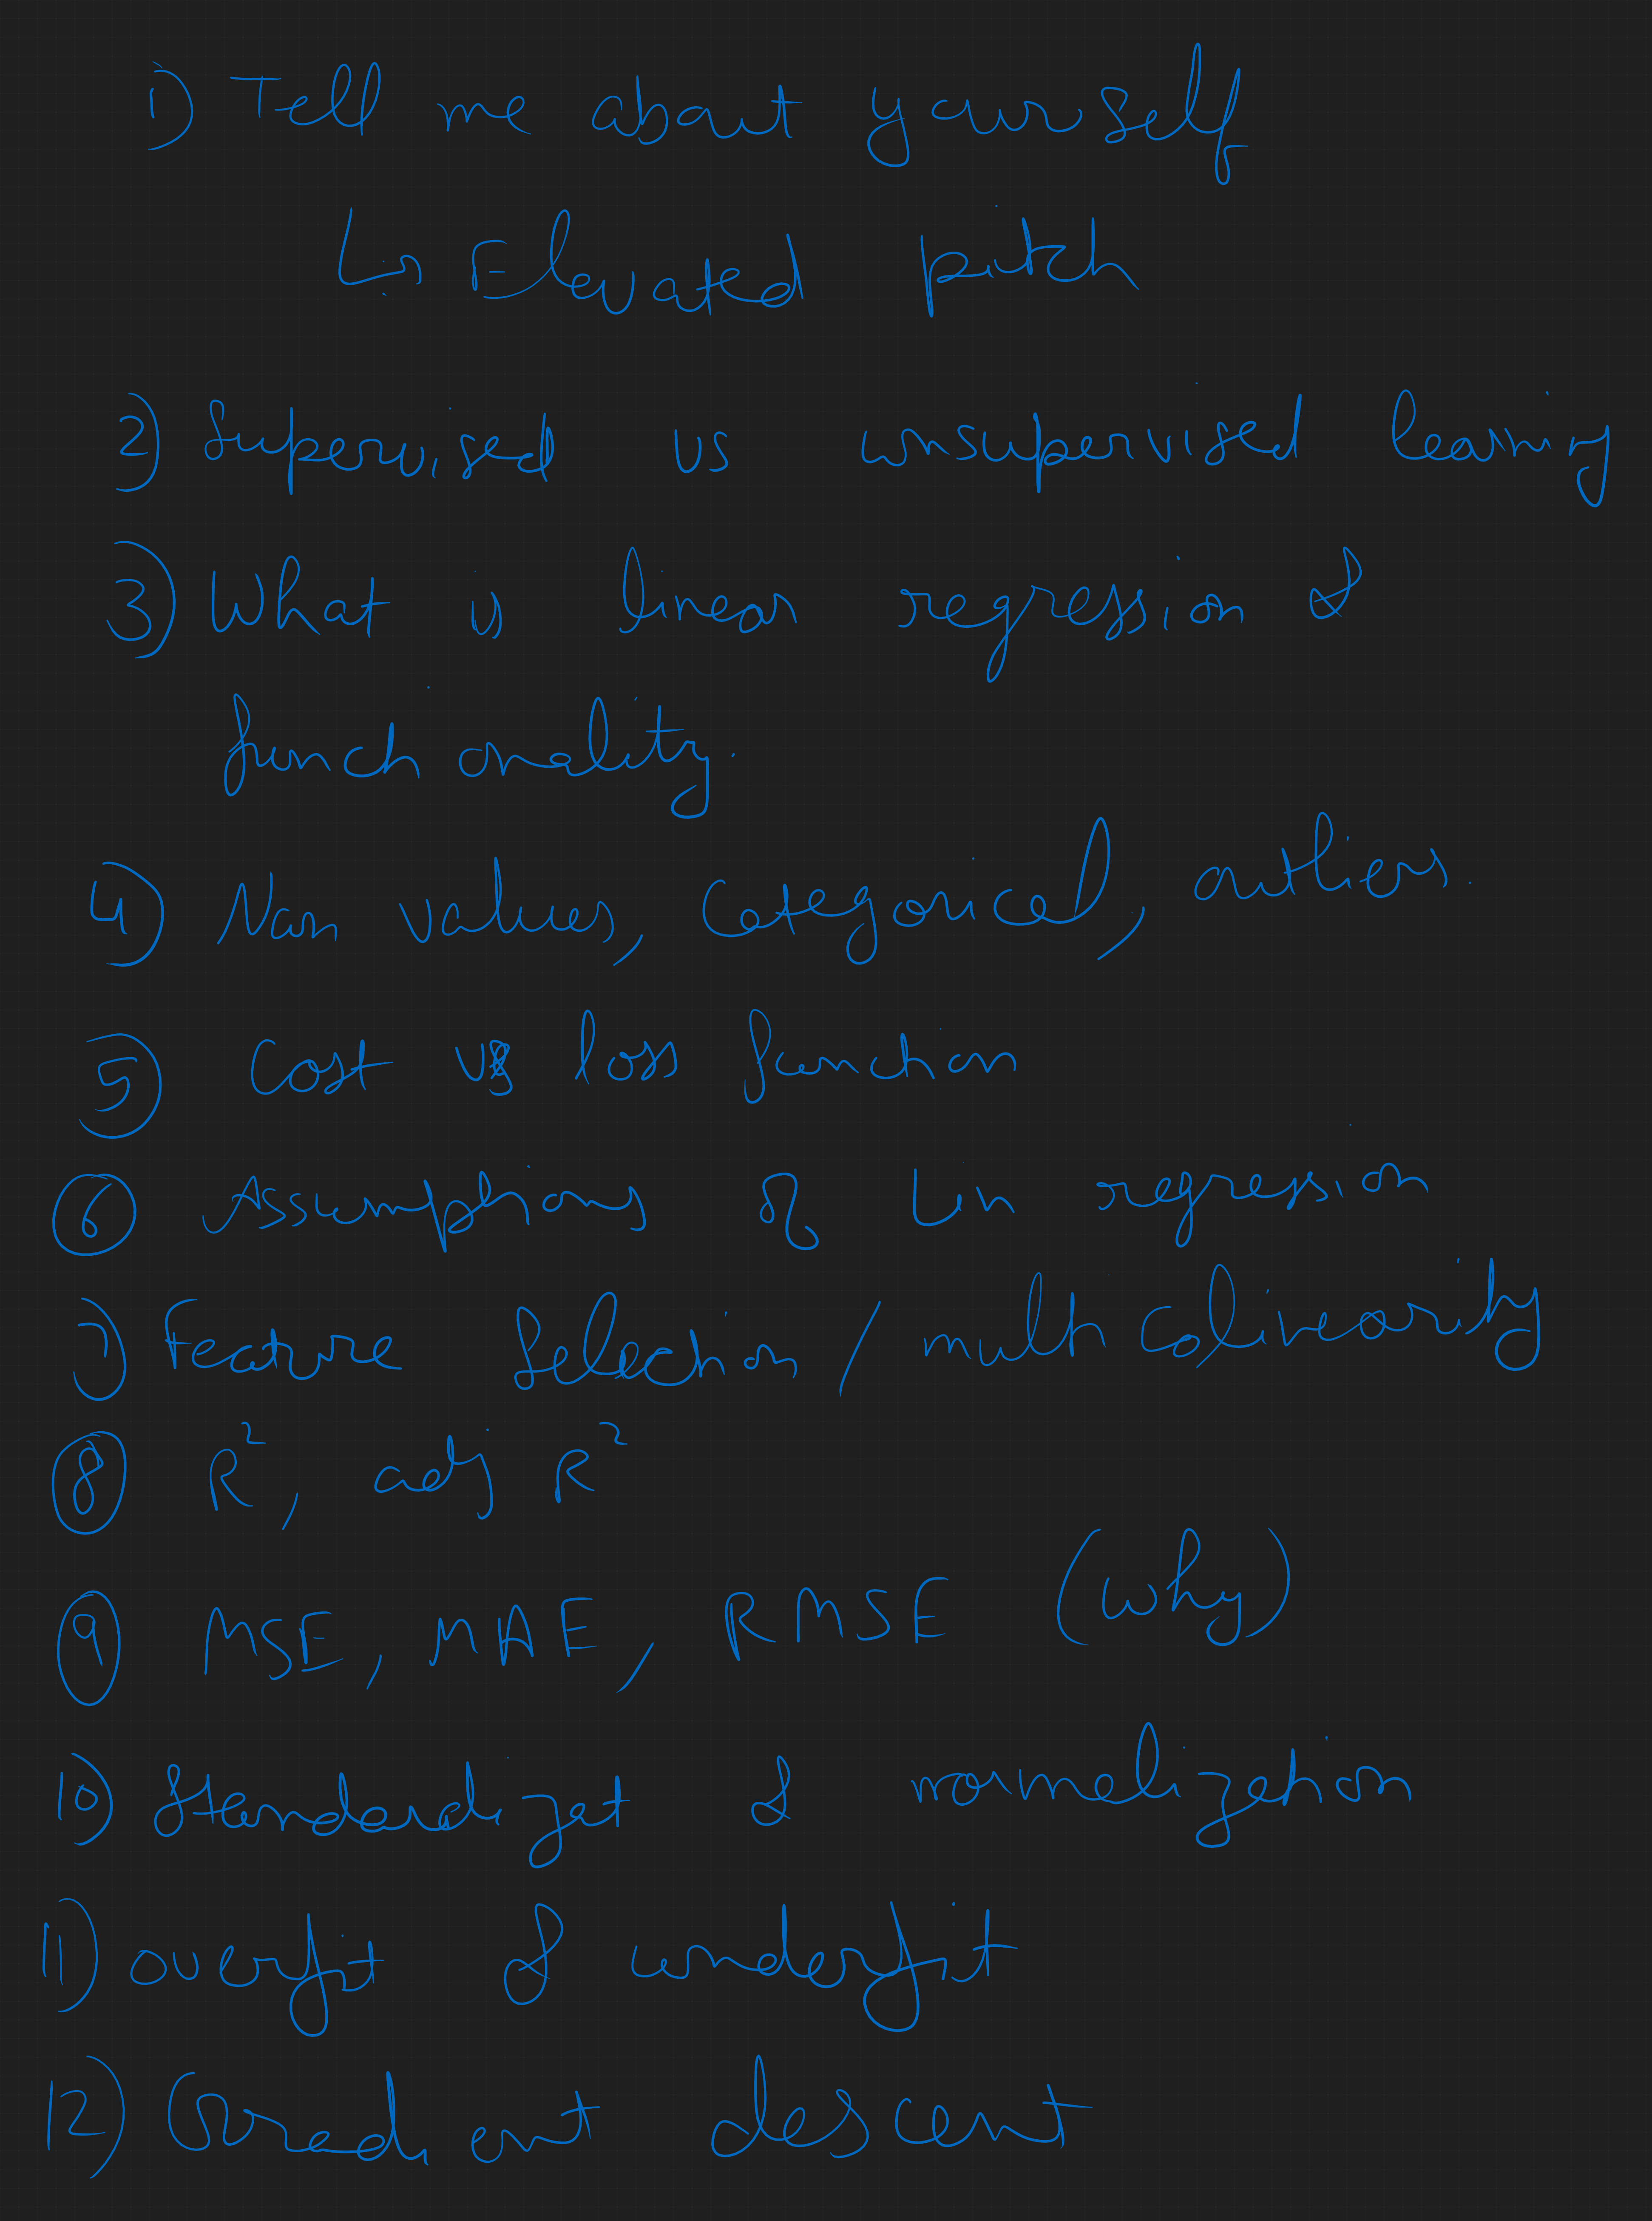 1) Tell me about yourself
↳ Elevated pitch
2) Supervised vs unsupervised learning
3) What is linear regression &
functionality.
4) Nan values, Categorical, outliers.
5) Cost vs loss function
6 Assumptions of Lin regression
7) Feature Selection / multi colinearity
8 R², adj R²
9 MSE, MAE, RMSE (Why)
10) Standardizat & normalization
11) overfit & underfit
12) Gradient descent